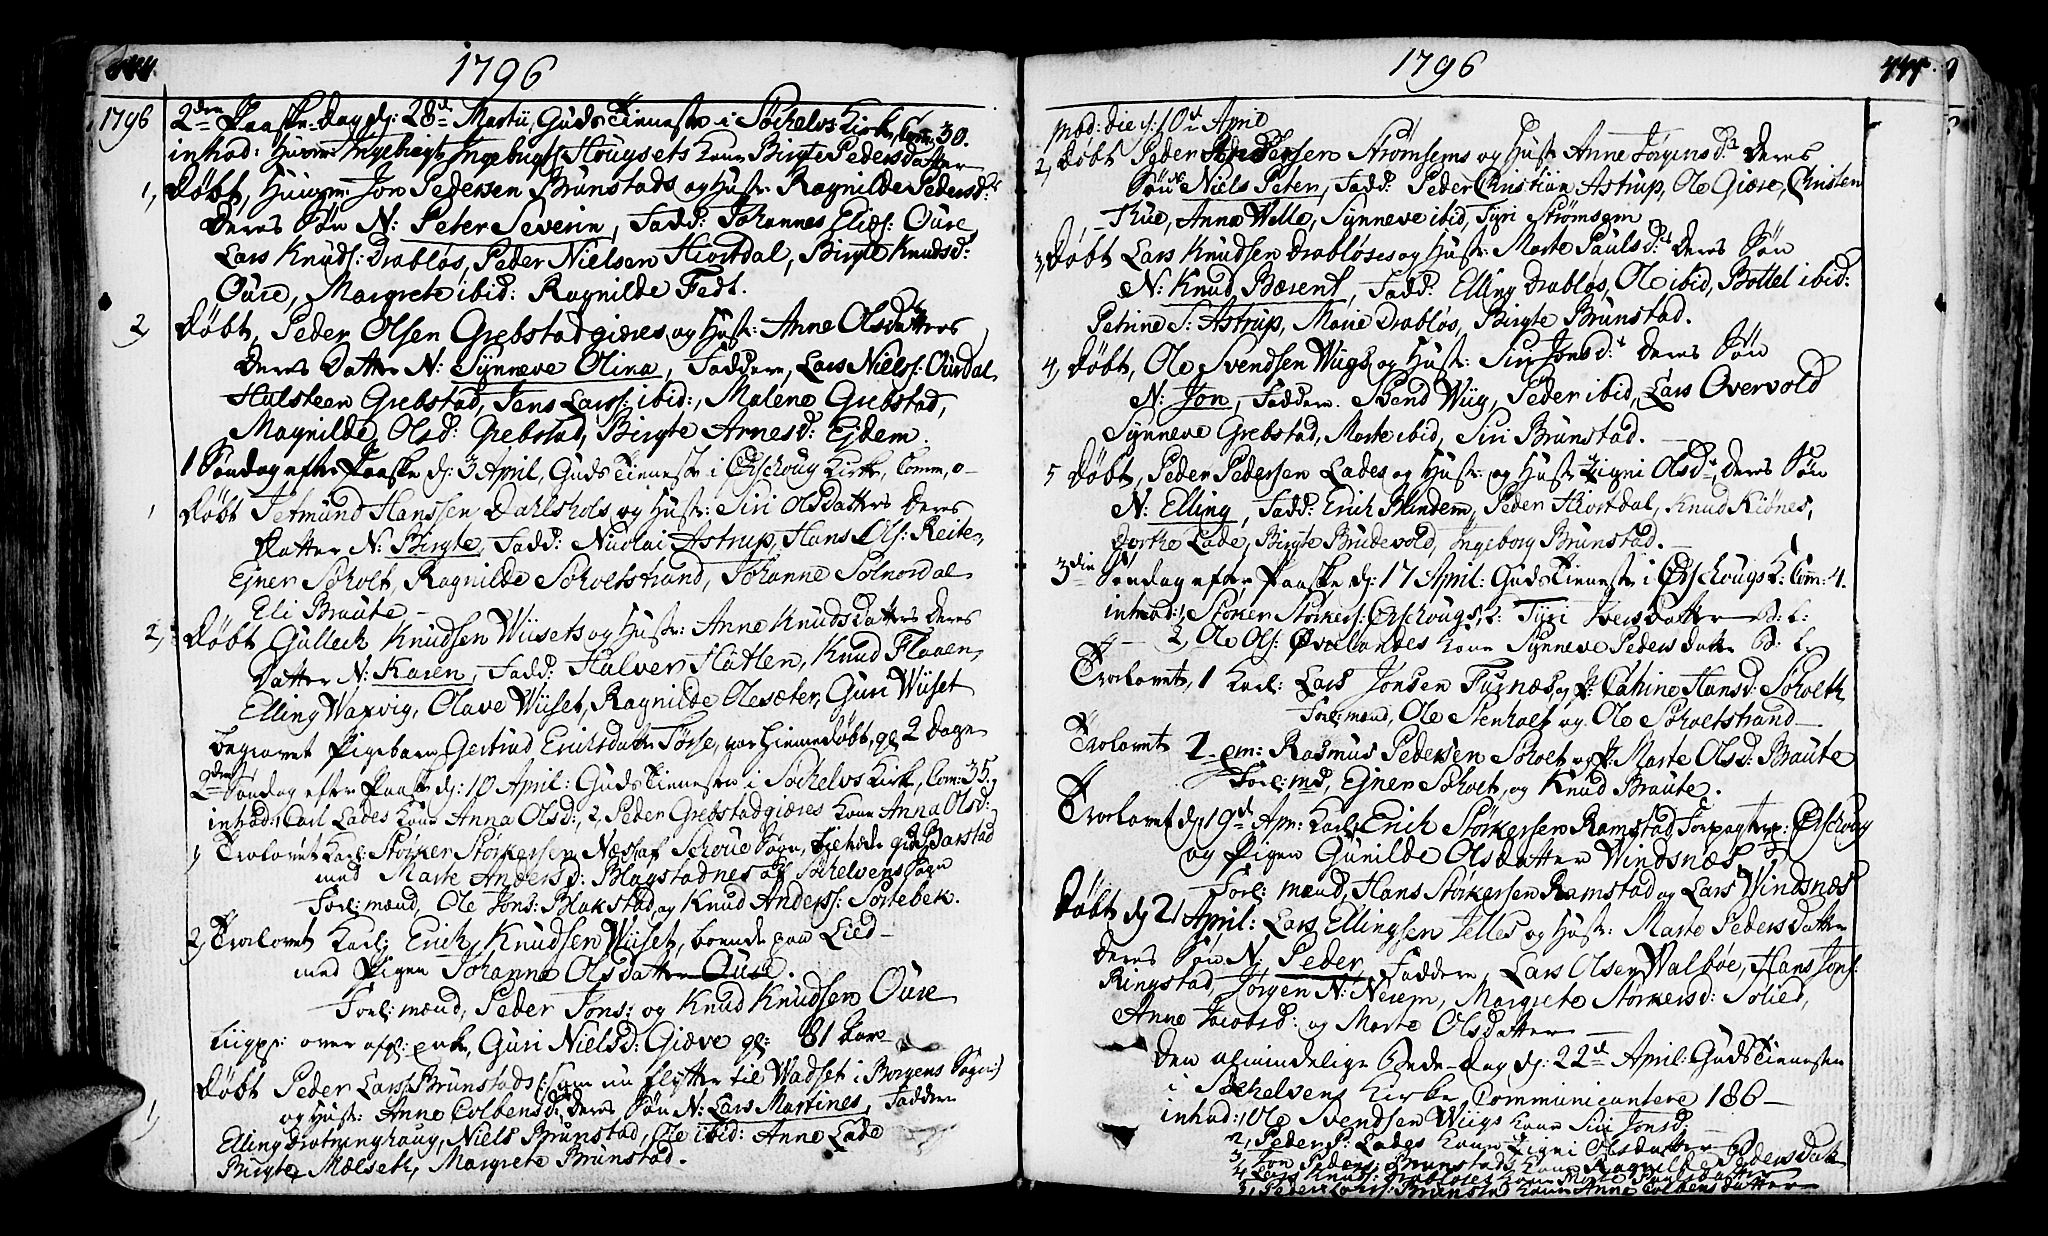 1796
1796 2den Paaske-Dag dj: 28d Martii, Guds Tienneste i Söchelvs Kirke, Com: 30.
inthod: Huusm: Ingebrigt Ingebrigts: Hougsets Kone Birgte Pedersdatter
1, Døbt, Huusm: Jon Pedersen Brunstads og Hust: Ragnilde Pedersd:
Deres Søn N: Peter Severin, Fadd: Johannes Elias: Oure,
Lars Knuds: Drabløs, Peder Nielsen Hiortdal, Birgte Knudsd:
Oure, Margrete ibid: Ragnilde Fedt.
2, Døbt, Peder Olsen Grebstadgiæres og Hust: Anne Olsdatters
Deres Datter N: Synneve Olina, Faddere, Lars Niels: Ourdal
Halsteen Grebstad, Jens Lars: ibid:, Malene Grebstad,
Magnilde Olsd: Grebstad, Birgte Arnesd: Ejdem.
1 Søndag efter Paaske dj: 3 April, Guds Tienneste i Ørschoug Kirke, Comm: 0-
1 Døbt Jetmund Hanssen Dahlshols og Hust: Siri Olsdatters Deres
Datter N: Birgte, Fadd: Nicolai Astrup, Hans Ols: Reiten,
Ejner Soholt, Ragnilde Soholtstrand, Johanne Solnordal
Eli Braute
2, Døbt Gulleck Knudsen Wiisets og Hust: Anne Knudsdatters Deres
Datter N: Karen, Fadd: Halver Hatlen, Knud Flaaen,
Elling Waxvig, Olave Wiiset, Ragnilde Olesæter, Guri Wiiset
begravet Pigebarn Gertrud Erichsdatter Tørse, var hiemmedøbt, gl: 2 Dage
2den Søndag efter Paaske dj: 10 April: Guds Tienneste i Søchelvs Kirke, Com: 35,
inthod: 1, Carl Lades Kone Anna Olsd:, 2, Peder Grebstadgiæres Kone Anna Olsd:
1, Trolovet Karl: Størker Størkersen Næs af Schoue Sogn,
med Marte Andersd: Blagstadnes af Søchelvens Sogn
Forl: mænd, Ole Jons: Blakstad og Knud Anders: Sortebek.
2, Trolovet Karl: Erich Knudsen Wiiset, boende paa Lied
med Pigen Johanne Olsdatter Oure.
Forl: mænd, Peder Jons: og Knud Knudsen Oure
Liigpr: over afg: enke, Guri Nielsd: Giæve gl: 81 Aar
1, Døbt Peder Lars: Brunstads (: som nu flytter til Wadset i Borgens Sogn:)
og Hust: Anne Colbensd: Deres Søn N: Lars Martines, Faddere
Elling Drotninghaug, Niels Brunstad, Ole ibid: Anne Lade
Birgte Mælseth, Margrete Brunstad.
1796
Mod: die s: 10d April
2, Døbt Peder Andersen Strømsems og Hust: Anne Jørgensd: Deres
Søn N: Niels Peter, Fadd: Peder Christian Astrup, Ole Giære, Christen
Thue, Anne Welle, Synneve ibid, Tyri Strømsem
3, Døbt Lars Knudsen Drabløses og Hust: Marte Paulsd: Deres Søn
N: Knud Bærent, Fadd: Elling Drabløs, Ole ibid, Bottel ibid:
Petrine S: Astrup, Marie Drabløs, Birgte Brunstad.
4, Døbt, Ole Svendsen Wiigs og Hust: Siri Jonsd: Deres Søn
N: Jon, Faddere. Svend Wiig, Peder ibid, Lars Overvold
Synneve Grebstad, Marte ibid, Siri Brunstad.
5 Døbt, Peder Pedersen Lades og Hust: og Hust: Signi Olsd: Deres Søn
N: Elling, Fadd: Erich Mindem, Peder Hiortdal, Knud Kiønes,
Dorthe Lade, Birgte Brudevold, Ingeborg Brunstad.
3die Søndag efter Paaske dj: 17 April: Guds Tienneste i Ørschougs K: Com: 4.
inthod: 1, Størker Størkers: Ørschougs, K: Tyri Iversdatter B: L:
2, Ole Ols: Øvrelandes Kone Synneve Pedersdatter B: L:
Trolovet, 1 Karl: Lars Jonsen Fursnæs og P: Cathrine Hansd: Soholth
Forl: mænd, Ole Stenholt og Ole Soholtstrand
Trolovet 2 em: Rasmus Pedersen Soholt og P: Marte Olsd: Braute
Forl: md, Ejner Soholt, og Knud Braute.
Trolovet dj 19d Apr: Karl: Erich Størkersen Ramstad Ørschoug
og Pigen Gunilde Olsdatter Windsnæs
Forl: mænd, Hans Størkersen Ramstad og Lars Windsnæs
Døbt dj 21 April: Lars Ellingsen Telles og Hust: Marte Pedersdatter
Deres Søn N: Peder, Faddere, Lars Olsen Walbøe, Hans Jons:
Ringstad, Jørgen N: Nerem, Margrete Størkersd: Solied,
Anne Jacobsd: og Marte Olsdatter
Den almindelige Bede-Dag dj: 22d April: Guds Tienneste
i Søchelvens Kirke, Communicantere 186
inthod: 1, Ole Svendsen Wiigs Kone Siri Jonsd:
2, Peder P: Lades Kone Signi Olsdatter
3, Jon Peders: Brunstads Kone Ragnilde Pedersdatt
4, Lars Knuds: Drabløses Kone Marte Paulsdatter
5, Peder Lars: Brunstad Kone Anne Colbensdatter